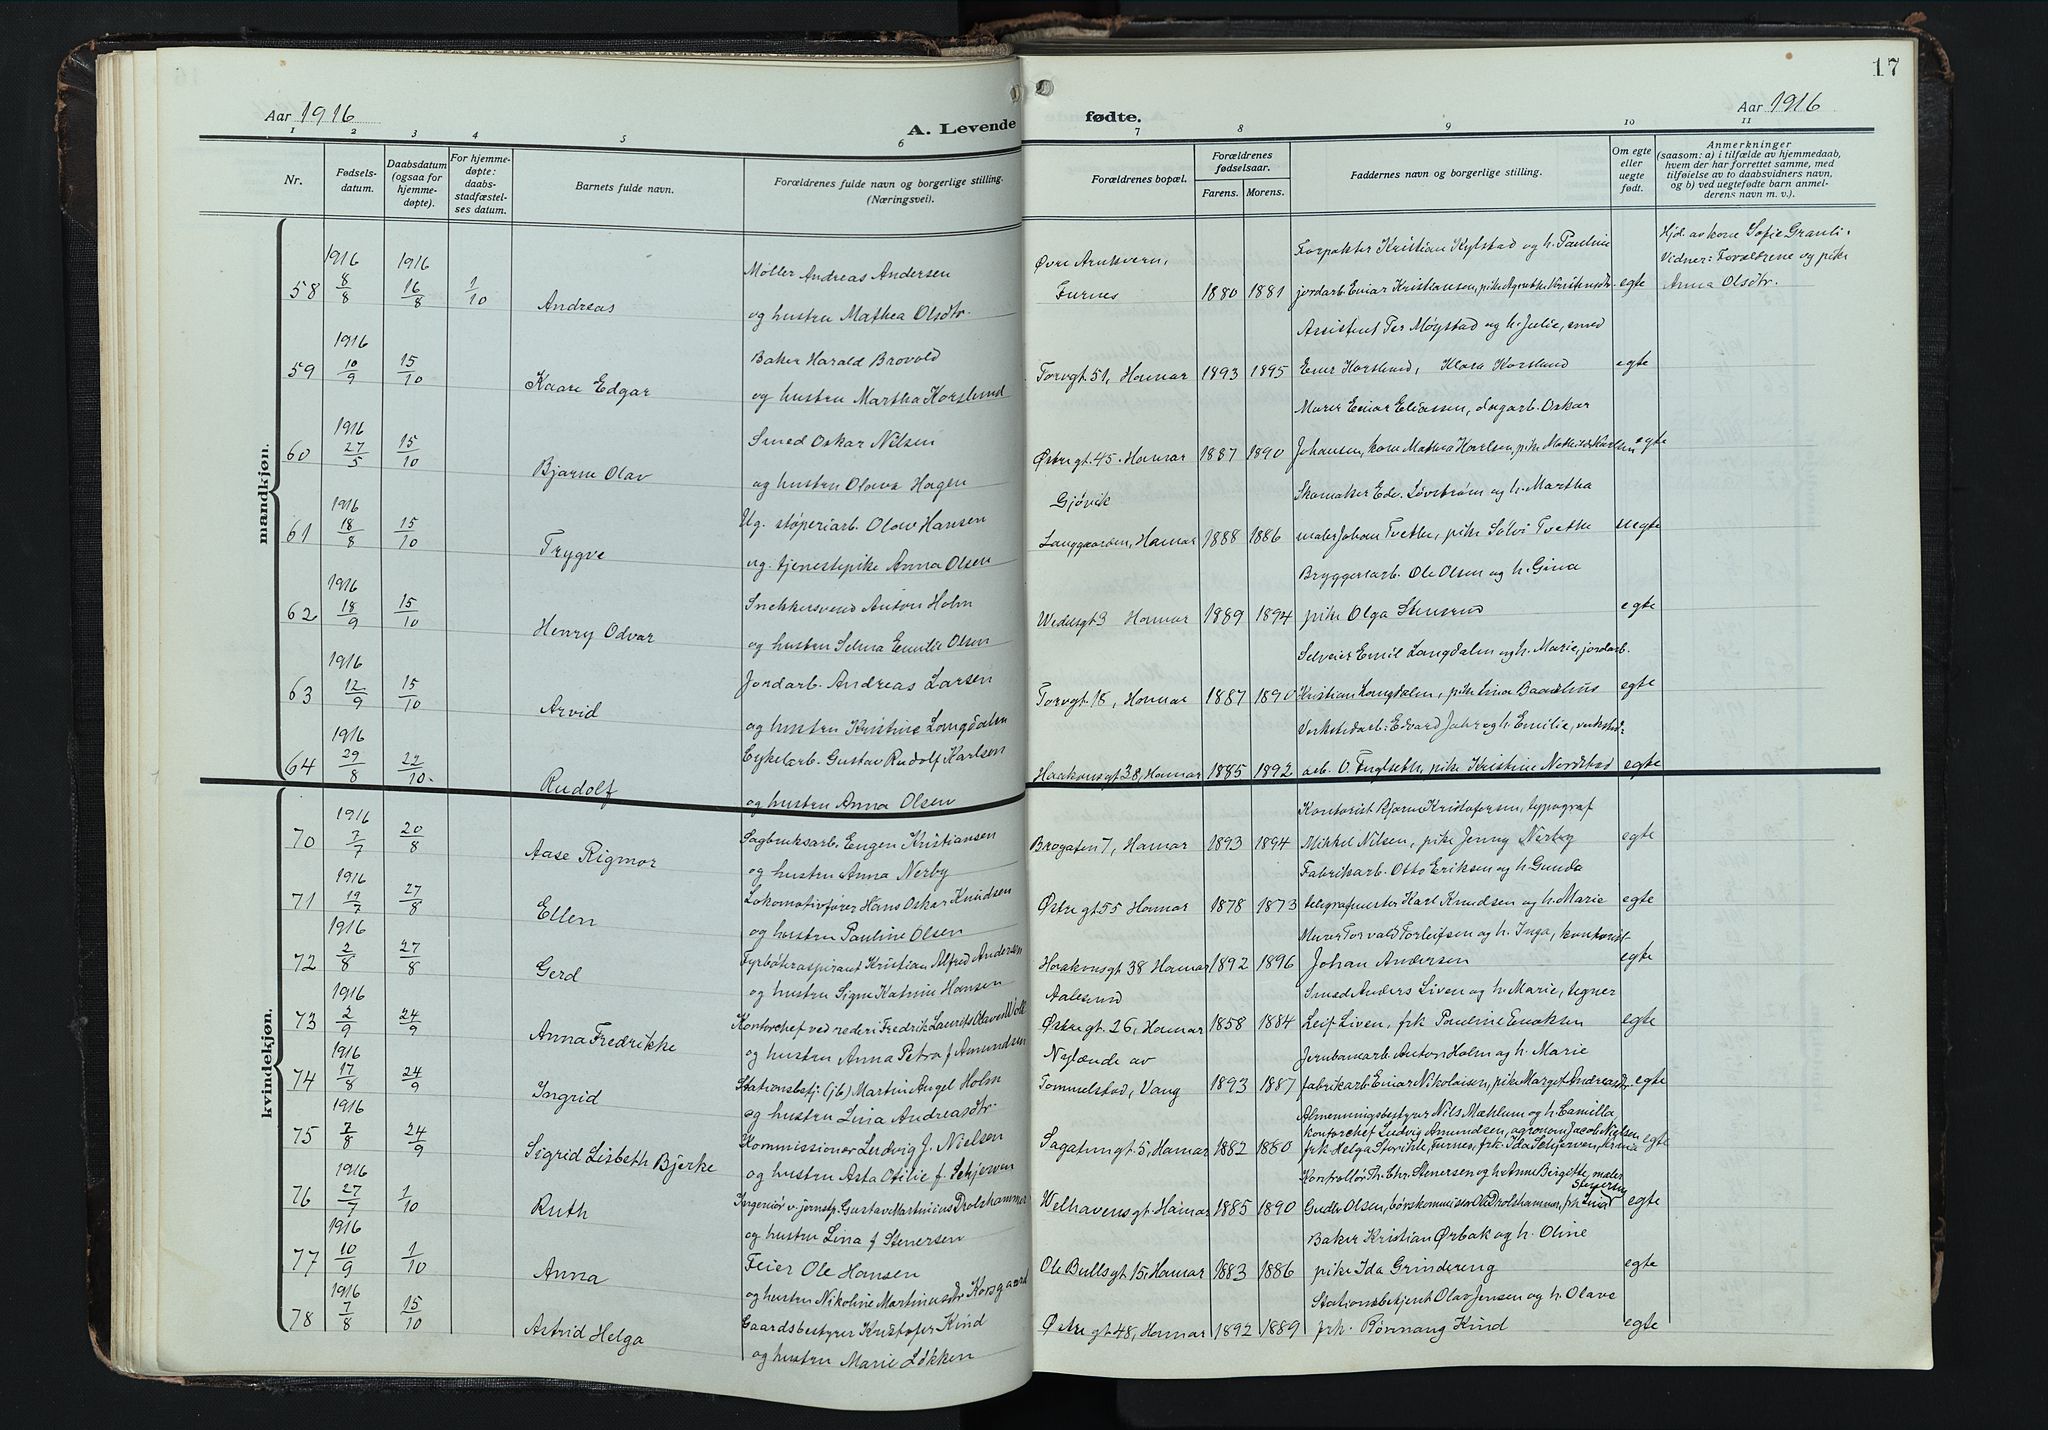 17
Aar 1916
Aar 1916
A. Levende fødte.
1 2 3 4 5 6 7 8 9 10 11
Nr.
Fødsels-
datum.
Daabsdatum
(ogsaa for
hjemme-
døpte).
For hjemme-
døpte:
daabs-
stadfæstel-
ses datum.
Barnets fulde navn.
Forældrenes fulde navn og borgerlige stilling.
(Næringsvei).
Forældrenes bopæl.
Forældrenes
fødselsaar.
Farens. Morens.
Faddernes navn og borgerlige stilling.
Om egte
eller
uegte
født.
Anmerkninger
(saasom: a) i tilfælde av hjemmedaab,
hvem der har forrettet samme, med
tilføielse av to daabsvidners navn,
og b) ved uegtefødte barn anmel-
derens navn m. v.).
mandkjøn.
1916 1916
58 8/8 16/8 1/10 Andreas
Møller Andreas Andersen
og hustru Mathea Olsdtr.
Øvre Arukvern,
Furnes 1880 1881
Forpakter Kristian Kylstad og h. Pauline
jordarb. Einar Kristiansen, pike Agnethe Kristensdtr. egte
Hjd. av kone Sofie Granli.
Vidner: Forældrene og pike
Anna Olsdtr.
1916
59 10/9 15/10 Kaare Edgar
Baker Harald Brovold
og hustru Martha Korslund
Torvgt. 51, Hamar 1893 1895
Assistent Per Møystad og h. Julie, smed
Einar Korslund, Klara Korslund egte
1916
60 27/5 15/10 Bjarne Olav
Smed Oskar Nilsen
og hustru Olava Hagen
Østregt. 45. Hamar 1887 1890
Murer Einar Eliassen, dagarb. Oskar
Johansen, kone Mathea Karlsen, pike Mathilde Karlsen egte
1916
61 18/8 15/10 Trygve
Ug. støperiarb. Olav Hansen
ug. tjenestepike Anna Olsen
Gjøvik
Langgaarden, Hamar 1888 1886
Skomaker Edv. Løvstrøm og h. Martha
maler Johan Tveth, pike Sølvi Tvethe uegte
1916
62 18/9 15/10 Henry Odvar
Snekkersvend Anton Holm
og hustru Selma Emilie Olsen
Wedelsgt 3 Hamar 1889 1894
Bryggeriarb. Ole Olsen og h. Gina
pike Olga Stensrud egte
1916
63 12/9 15/10 Arvid
Jordarb. Andreas Larsen
og hustru Kristine Langdalen
Torvgt. 18, Hamar 1887 1890
Selveier Emil Langdalen og h. Marie, jordarb.
Kristian Langdalen, pike Lina Baashus egte
1916
64 29/8 22/10 Rudolf
Cykelarb. Gustav Rudolf Karlsen
og hustru Anna Olsen
Haakonsgt 38, Hamar 1885 1892
Verkstedarb. Edvard Jahr og h. Emilie, verksted-
arb. O. Fuglseth, pike Kristine Nordstad egte
kvindekjøn.
1916
70 7/7 20/8 Aase Rigmor
Sagbruksarb. Eugen Kristiansen
og hustru Anna Nerby
Brogaten 7, Hamar 1893 1894
Kontorist Bjarne Kristofersen, typograf
Mikkel Nilsen, pike Jenny Nerby egte
1916
71 19/7 27/8 Ellen
Lokomotivfører Hans Oskar Knudsen
og hustru Pauline Olsen
Østregt 55 Hamar 1878 1873
Fabrikarb. Otto Eriksen og h. Gunda
telegrafmester Karl Knudsen og h. Marie egte
1916
72 2/8 27/8 Gerd
Fyrbøteraspirant Kristian Alfred Andersen
og hustru Signe Katrine Hansen
Haakonsgt 38 Hamar 1892 1896
Murer Torvald Torleifsen og h. Inga, kontorist
Johan Andersen egte
1916
73 2/9 24/9 Anna Fredrikke
Kontorchef ved rederi Fredrik Laurits Olaves Volk
og hustru Anna Petra f Amundsen
Aalesund
Østregt. 26, Hamar 1858 1884
Smed Anders Liven og h. Marie, tegner
Leif Liven, frk Pauline Enoksen egte
1916
74 17/8 24/9 Ingrid
Stationsbetj. (jb) Martin Angel Holm
og hustru Lina Andreasdtr.
Nylænde av
Tommelstad, Vang 1893 1887
Jernbanearb. Anton Holm og h. Marie
fabrikarb. Einar Nikolaisen, pike Margit Andreasdtr egte
1916
75 7/8 24/9 Sigrid Lisbeth Bjerke
Kommissionær Ludvig J. Nielsen
og hustru Asta Otilie f. Schjerven
Sagatungt 5, Hamar 1882 1880
Almenningsbestyrer Nils Mæhlum og h. Camilla
kontorchef Ludvig Amundsen, agronom Jacob Nielsen
frk Helga Storihle, Furnes, frk. Ida Schjerven, Krnia egte
1916
76 27/7 1/10 Ruth
Ingeniør v. jernstp. Gustav Martinius Drolshammer
og hustru Lina f Stenersen
Welhavensgt. Hamar 1885 1890
Kontrollør Th. Chr. Stenersen og h. Anne Birgitte, maler
Gudbr. Olsen, børskommissær Ole Drolshammer, frk Lina Stenersen egte
1916
77 10/9 1/10 Anna
Feier Ole Hansen
og hustru Nikoline Martinusdtr Korsgaard
Ole Bullsgt 15, Hamar 1883 1886
Baker Kristian Ørbak og h. Oline
pike Ida Grindereng egte
1916
78 7/8 15/10 Astrid Helga
Gaardsbestyrer Kristofer Kind
og hustru Marie Løkken
Østregt. 48, Hamar 1892 1889
Stationsbetjent Olav Jensen og h. Olava
frk. Rønnaug Kind egte